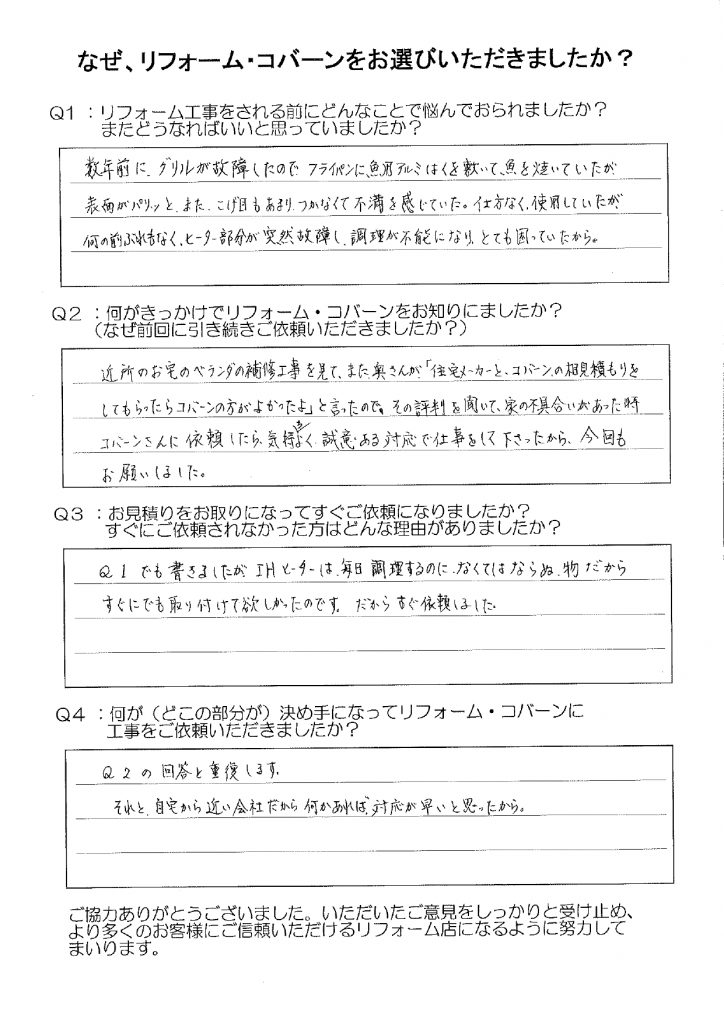 なぜ、リフォーム・コバーンをお選びいただきましたか？
Q1：リフォーム工事をされる前にどんなことで悩んでおられましたか？
またどうなればいいと思っていましたか？
数年前に、グリルが故障したので フライパンに、魚用アルミはくを敷いて、魚を焼いていたが
表面がパリッと、また、こげ目もあまり、つかなくて不満を感じていた。仕方なく、使用していたが
何の前ぶれもなく、ヒーター部分が突然故障し、調理が不能になり、とても困っていたから。
Q2：何がきっかけでリフォーム・コバーンをお知りにましたか？
（なぜ前回に引き続きご依頼いただきましたか？）
近所のお宅のベランダの補修工事を見て、また、奥さんが「住宅メーカーと、コバーンの相見積もりを
してもらったらコバーンの方がよかったよ」と言ったので。その評判を聞いて、家の不具合いがあった時
コバーンさんに依頼したら、気持よく、誠意ある対応で仕事をして下さったから、今回も
お願いしました。
Q3：お見積りをお取りになってすぐご依頼になりましたか？
すぐにご依頼されなかった方はどんな理由がありましたか？
Q1でも書きましたが、IHヒーターは、毎日調理するのに、なくてはならぬ、物だから
すぐにでも取り付けて欲しかったのです。だからすぐ依頼しました。
Q4：何が（どこの部分が）決め手になってリフォーム・コバーンに
工事をご依頼いただきましたか？
Q2の回答と重復します。
それと、自宅から近い会社だから何かあれば、対応が早いと思ったから。
ご協力ありがとうございました。いただいたご意見をしっかりと受け止め、
より多くのお客様にご信頼いただけるリフォーム店になるように努力して
まいります。